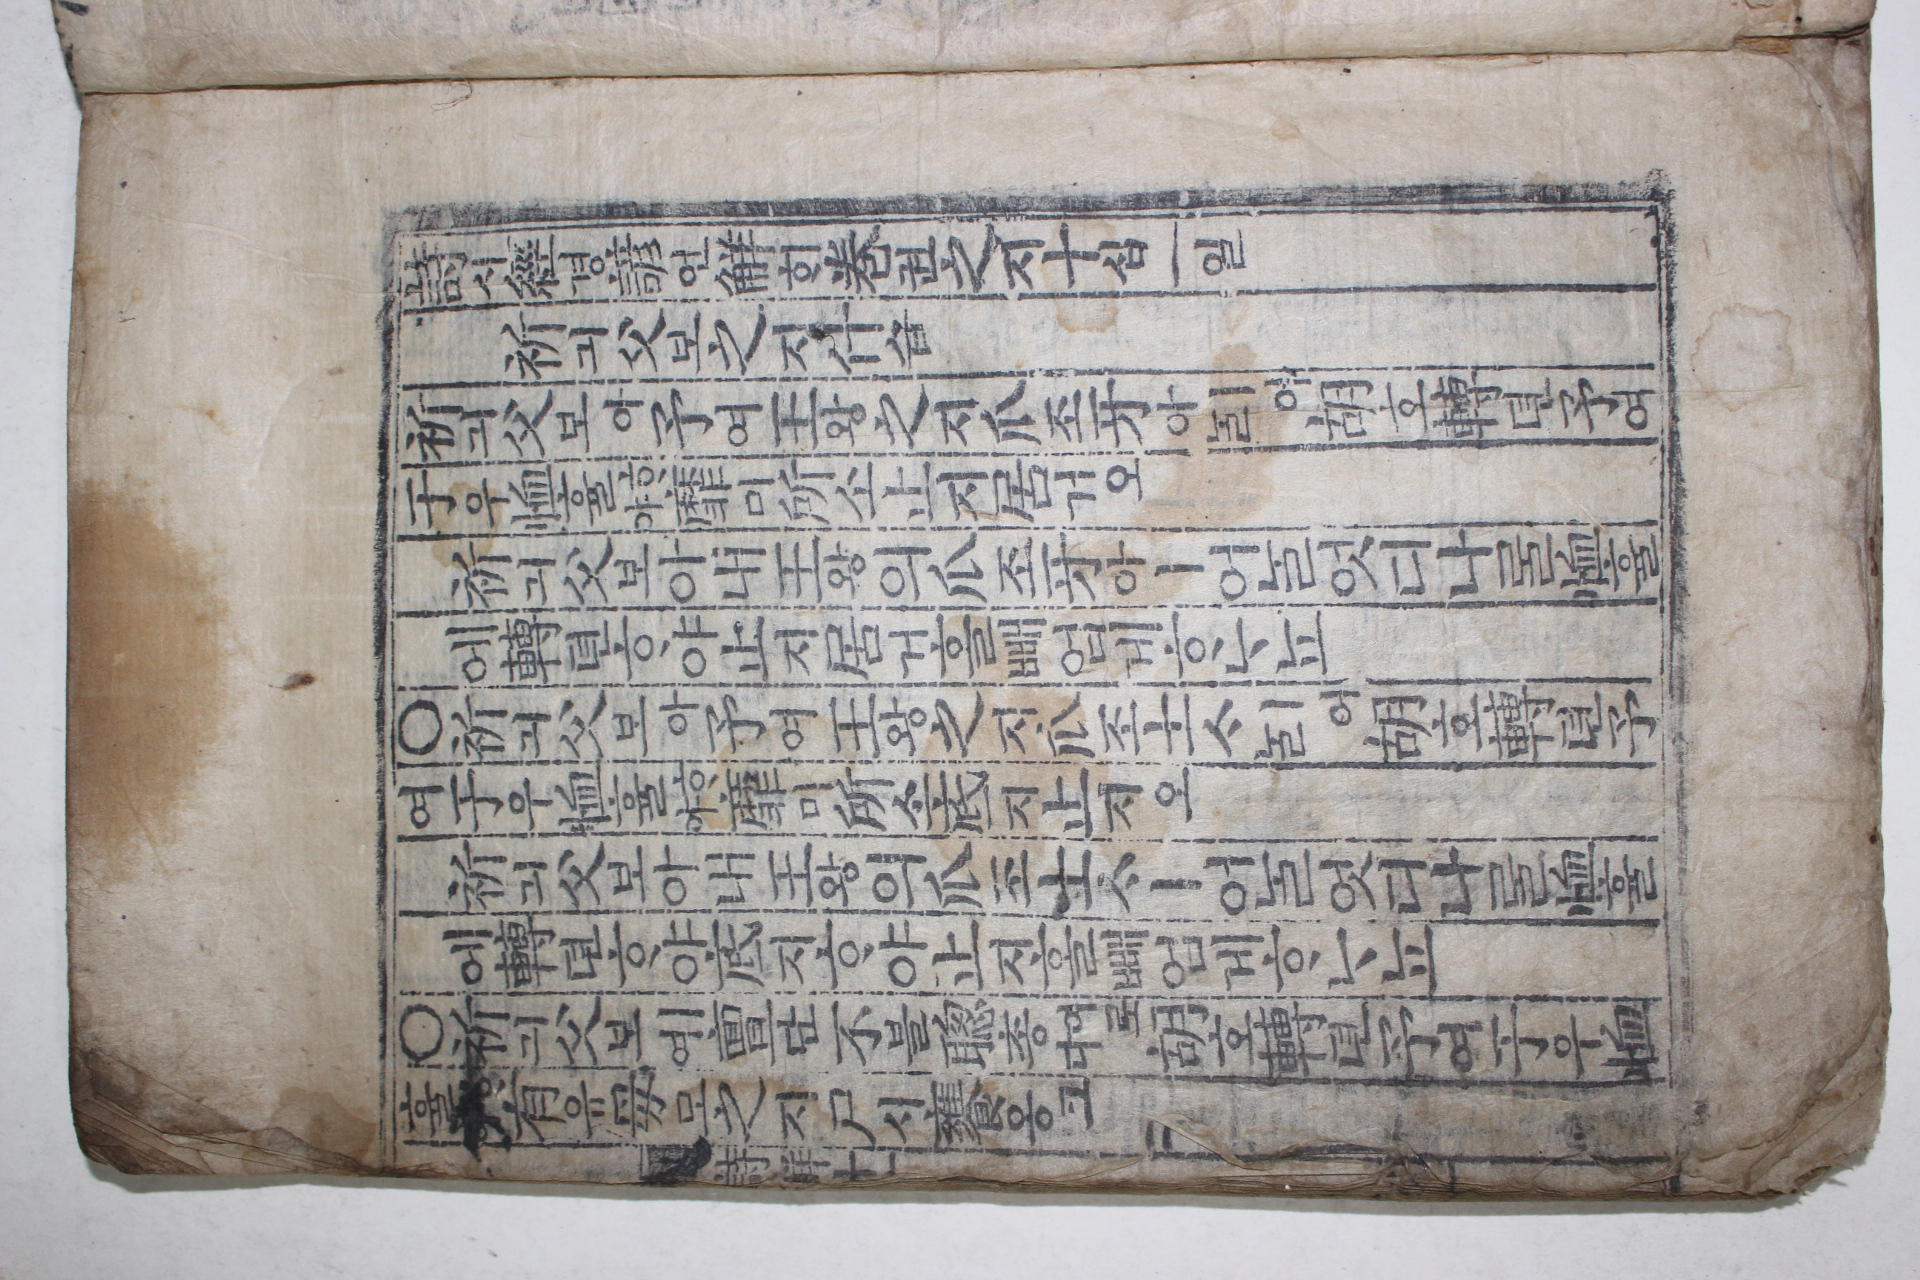 詩시經경諺언解ᄒᆡ卷권之지十십一일
祈긔父보之지什습
祈긔父보아予여王왕之지爪조牙아ㅣ어늘胡호轉뎐予여
于우恤휼ᄒᆞ야靡미所소止지居거오
祈긔父보아내王왕의爪조牙아ㅣ어늘엇디나ᄅᆞᆯ恤휼
에轉뎐ᄒᆞ야止지居거ᄒᆞᆯ빼업게ᄒᆞᄂᆞ뇨
○祈긔父보아予여王왕之지爪조士ᄉᆞㅣ어늘胡호轉뎐予
여于우恤휼ᄒᆞ야靡미所소底지止지오
祈긔父보아내王왕의爪조士ᄉᆞㅣ어늘엇디나ᄅᆞᆯ恤휼
에轉뎐ᄒᆞ야底지ᄒᆞ야止지ᄒᆞᆯ빼업게ᄒᆞᄂᆞ뇨
○祈긔父보ㅣ여亶단不블聰총胡호轉뎐予여于우恤
휼有유母모之지尸시饔옹고
詩解十一